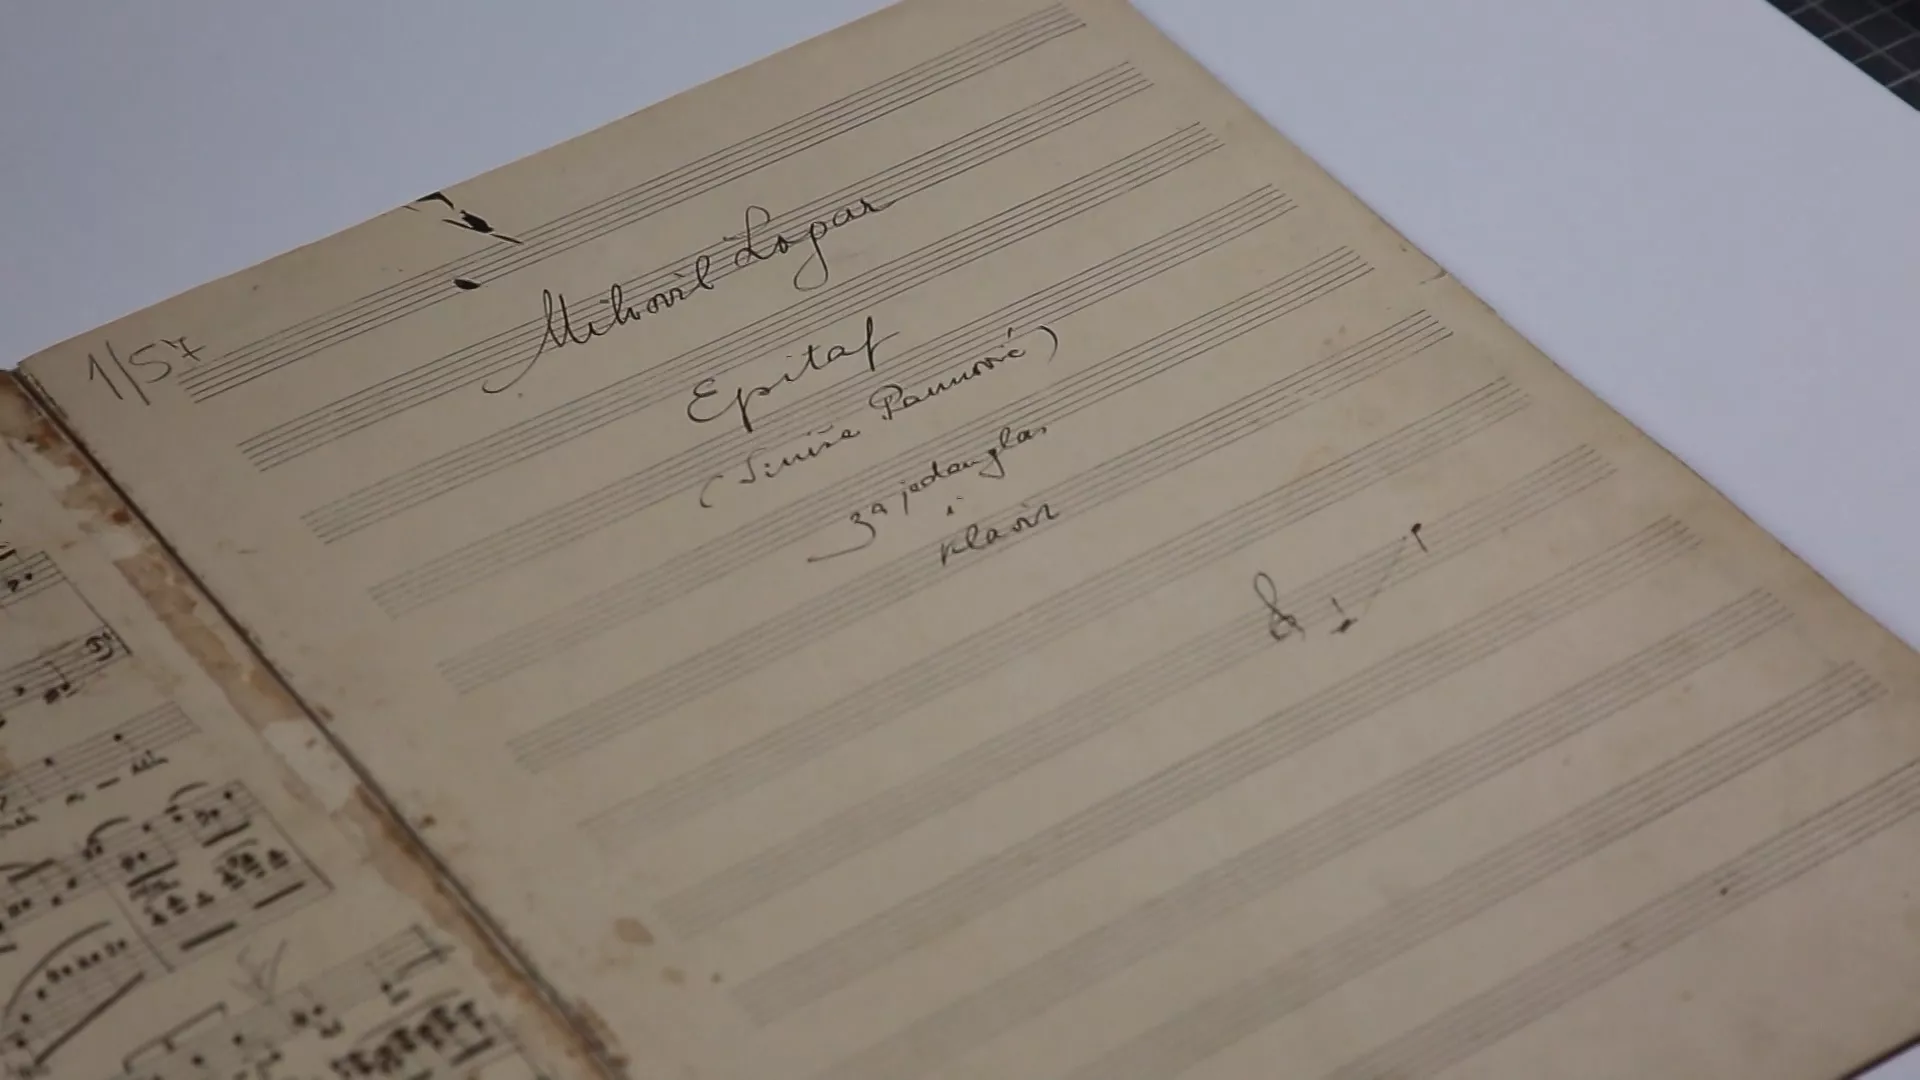 1/57
Mihovil Logar
Epitaf
(Siniša Paunović)
za jedan glas
i
klavir